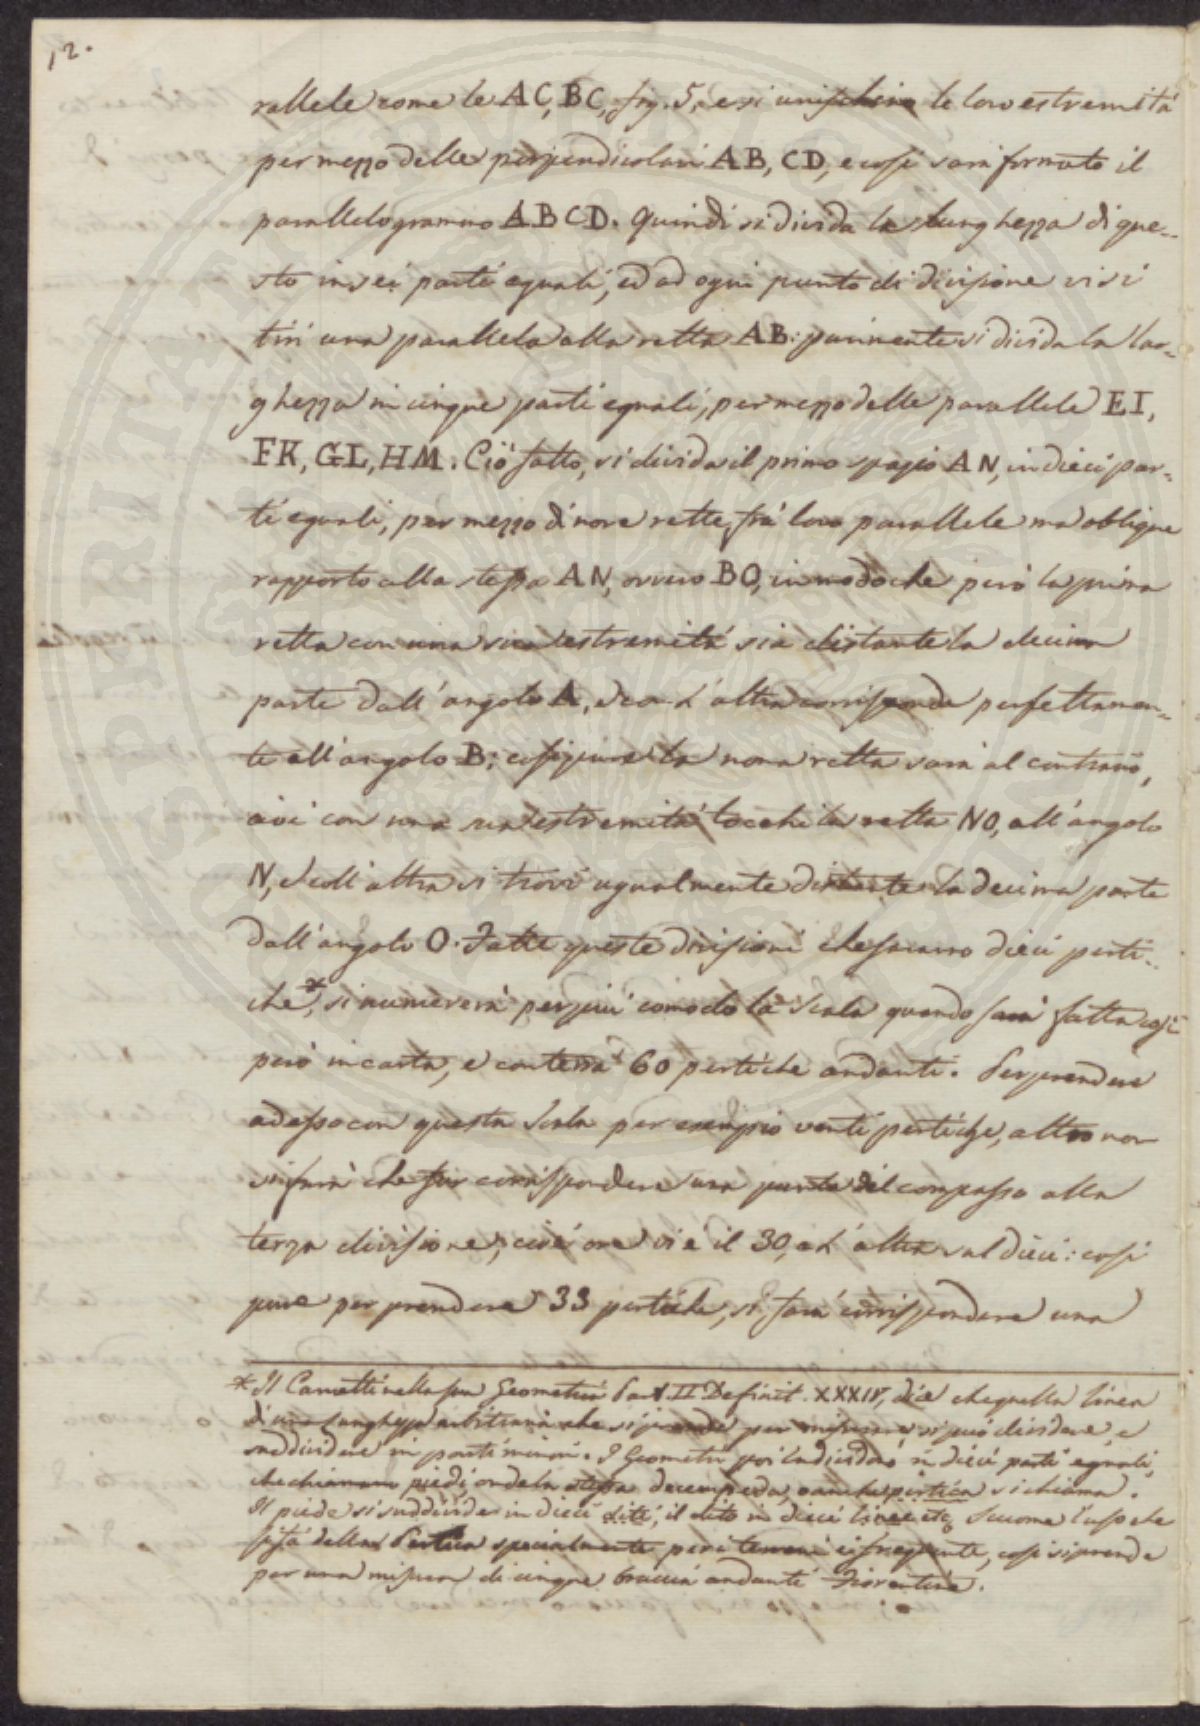 12.
rallele come le AC, BC, fig. 5, e si unischino le loro estremità
per mezzo delle perpendicolari AB, CD, e così sarà formato il
parallelogrammo ABCD. Quindi si divida la lunghezza di que-
sto in sei parti eguali, ed ad ogni punto di divisione vi si
tiri una parallela alla retta AB: parimente si divida la lar-
ghezza in cinque parti eguali, per mezzo delle parallele EI,
FK, GL, HM. Ciò fatto, si divida il primo spazio AN, in dieci par-
ti eguali, per mezzo di nove rette, frà loro parallele ma oblique
rapporto alla stessa AN, ovvero BO, in modo che però la prima
retta con una sua estremità sia distante la decima
parte dall' angolo A, e con l' altra corrisponda perfettamen-
te all' angolo B; così pure la nona retta sarà al contrario,
cioè con una sua estremità tocchi la retta NO, all' angolo
N, e coll' altra si trovi ugualmente distante la decima parte
dall' angolo O. Fatte queste divisioni che saranno dieci perti-
che*, si numererà per più comodo la Scala quando sarà fatta così
però in carta, e conterrà 60 pertiche andanti. Per prendere
adesso con questa Scala per esempio venti pertiche, altro non
si farà che far corrispondere una punta del compasso alla
terza divisione, cioè ove vi è il 30, e l' altra sul dieci: così
pure per prendere 33 pertiche, si farà corrispondere una
* Il Cametti nella sua Geometria Part. II. Definit. XXXIV, dice che quella linea
di una lunghezza arbitraria che si prende per misurare si può dividere, e
suddividere in parti minori. I Geometri poi la dividono in dieci parti eguali,
che chiamano piedi, onde la stessa decempeda, o anche pertica si chiama.
Il piede si suddivide in dieci diti, il dito in dieci linee etc. Siccome l' uso che
si fà della Pertica specialmente per i terreni è frequente, così si prende
per una misura di cinque braccia andanti Fiorentine.